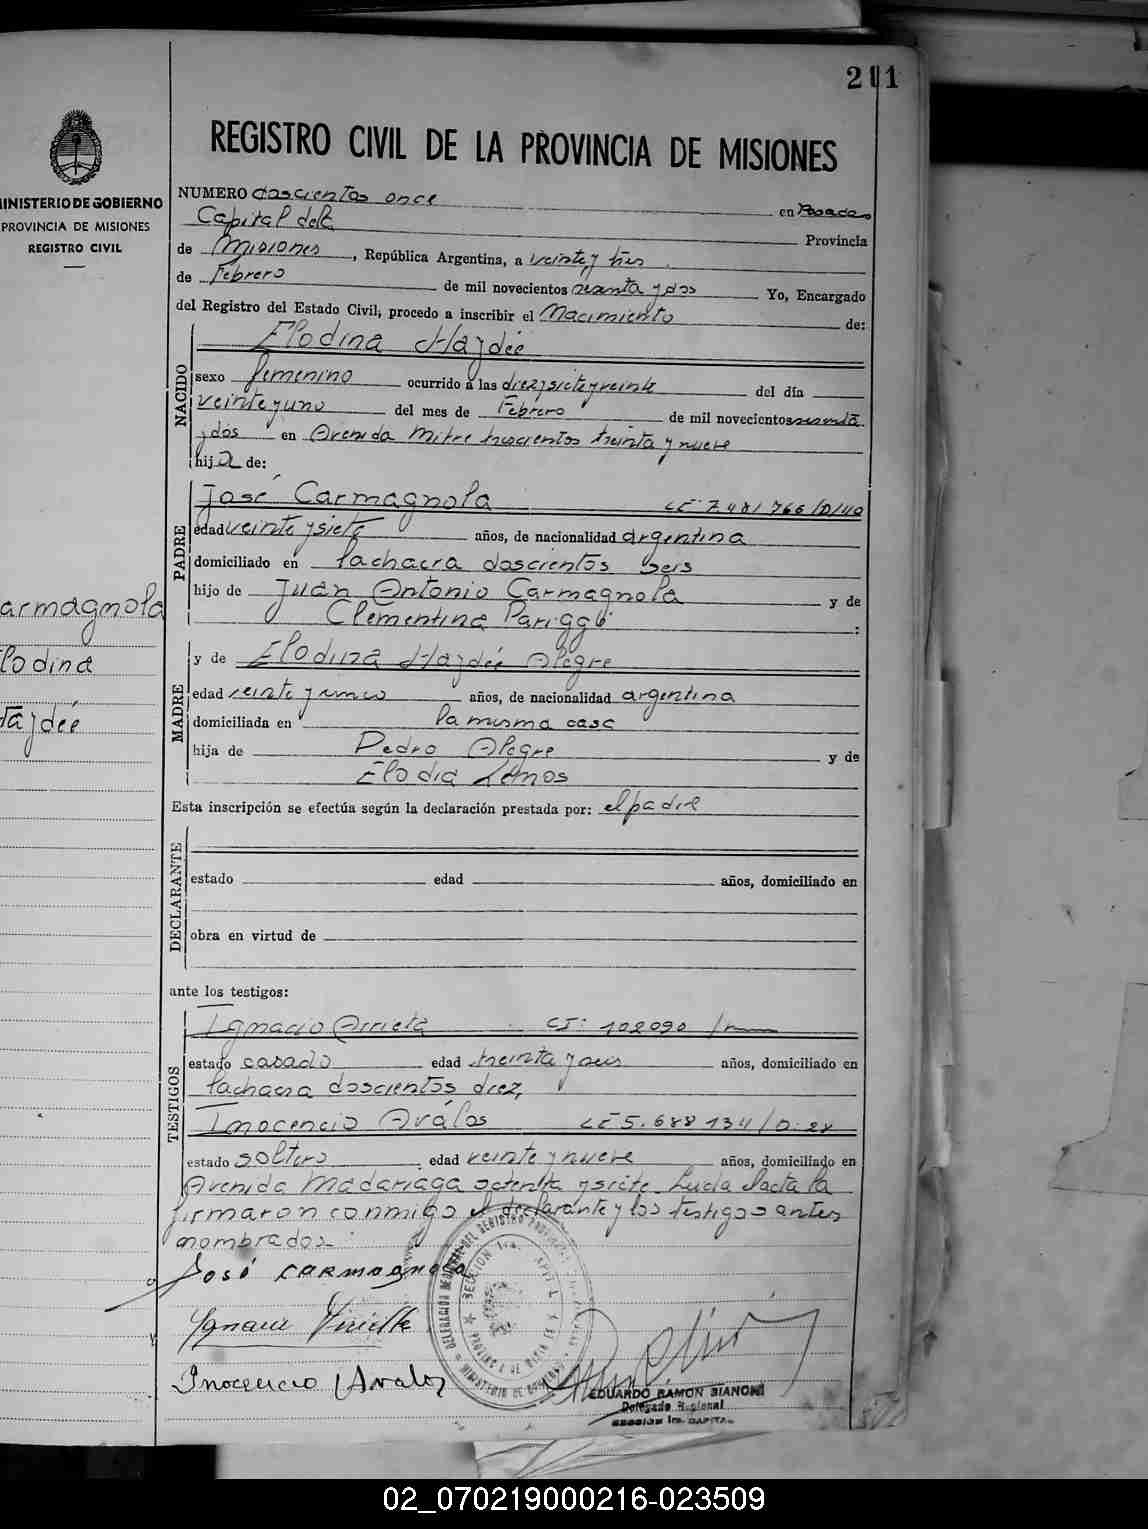 211
REGISTRO CIVIL DE LA PROVINCIA DE MISIONES
MINISTERIO DE GOBIERNO
PROVINCIA DE MISIONES
REGISTRO CIVIL
NUMERO doscientos once en Posadas
Capital de la Provincia
de Misiones, República Argentina, a veinte y tres
de Febrero de mil novecientos sesenta y dos Yo, Encargado
del Registro del Estado Civil, procedo a inscribir el Nacimiento de:
NACIDO
Elodina Haydée
sexo femenino ocurrido a las diez y siete y veinte del día
veinte y uno del mes de Febrero de mil novecientos sesenta
y dos en Avenida Mitre trescientos treinta y nueve
hija de:
PADRE
José Carmagnola LE 7.481 766
edad veinte y siete años, de nacionalidad argentina
domiciliado en la chacra doscientos seis
hijo de Juan Antonio Carmagnola y de
Clementina
MADRE
y de Elodina Haydée Alegre
edad veinte y años, de nacionalidad argentina
domiciliada en la misma casa
hija de Pedro Alegre y de
Elodia Lemos
Esta inscripción se efectúa según la declaración prestada por: el padre
DECLARANTE
estado edad años, domiciliado en
obra en virtud de
ante los testigos:
TESTIGOS
Ignacio Arrieta CI: 102090
estado casado edad treinta y años, domiciliado en
la chacra doscientos diez,
Inocencio Aválos LE 5.688 134/D.28
estado soltero edad veinte y nueve años, domiciliado en
Avenida Madariaga setenta y siete. Leída el acta la
firmaron conmigo el declarante y los testigos antes
nombrados.
José CARMAGNOLA
Inocencio Avalos
EDUARDO RAMON BIANCHI
Delegado Regional
SECCION 1ra. CAPITAL
armagnola
lodina
Haydée
02_070219000216-023509